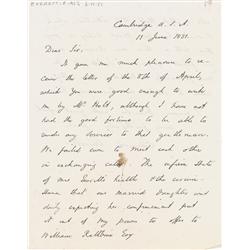 Cambridge U.S.A.
11 June 1851.
Dear Sir,
It gave me much pleasure to re-
ceive the letter of the 8th of April,
which you were good enough to write
me by Mr Holt, although I have not
had the good fortune to be able to
render any services to that gentleman.
We failed even to meet each other
in exchanging calls. The infirm State
of Mrs health & the circum-
stance that our married daughter was
daily expecting her confinement put
it out of my power to offer to
William Rathbone Esq